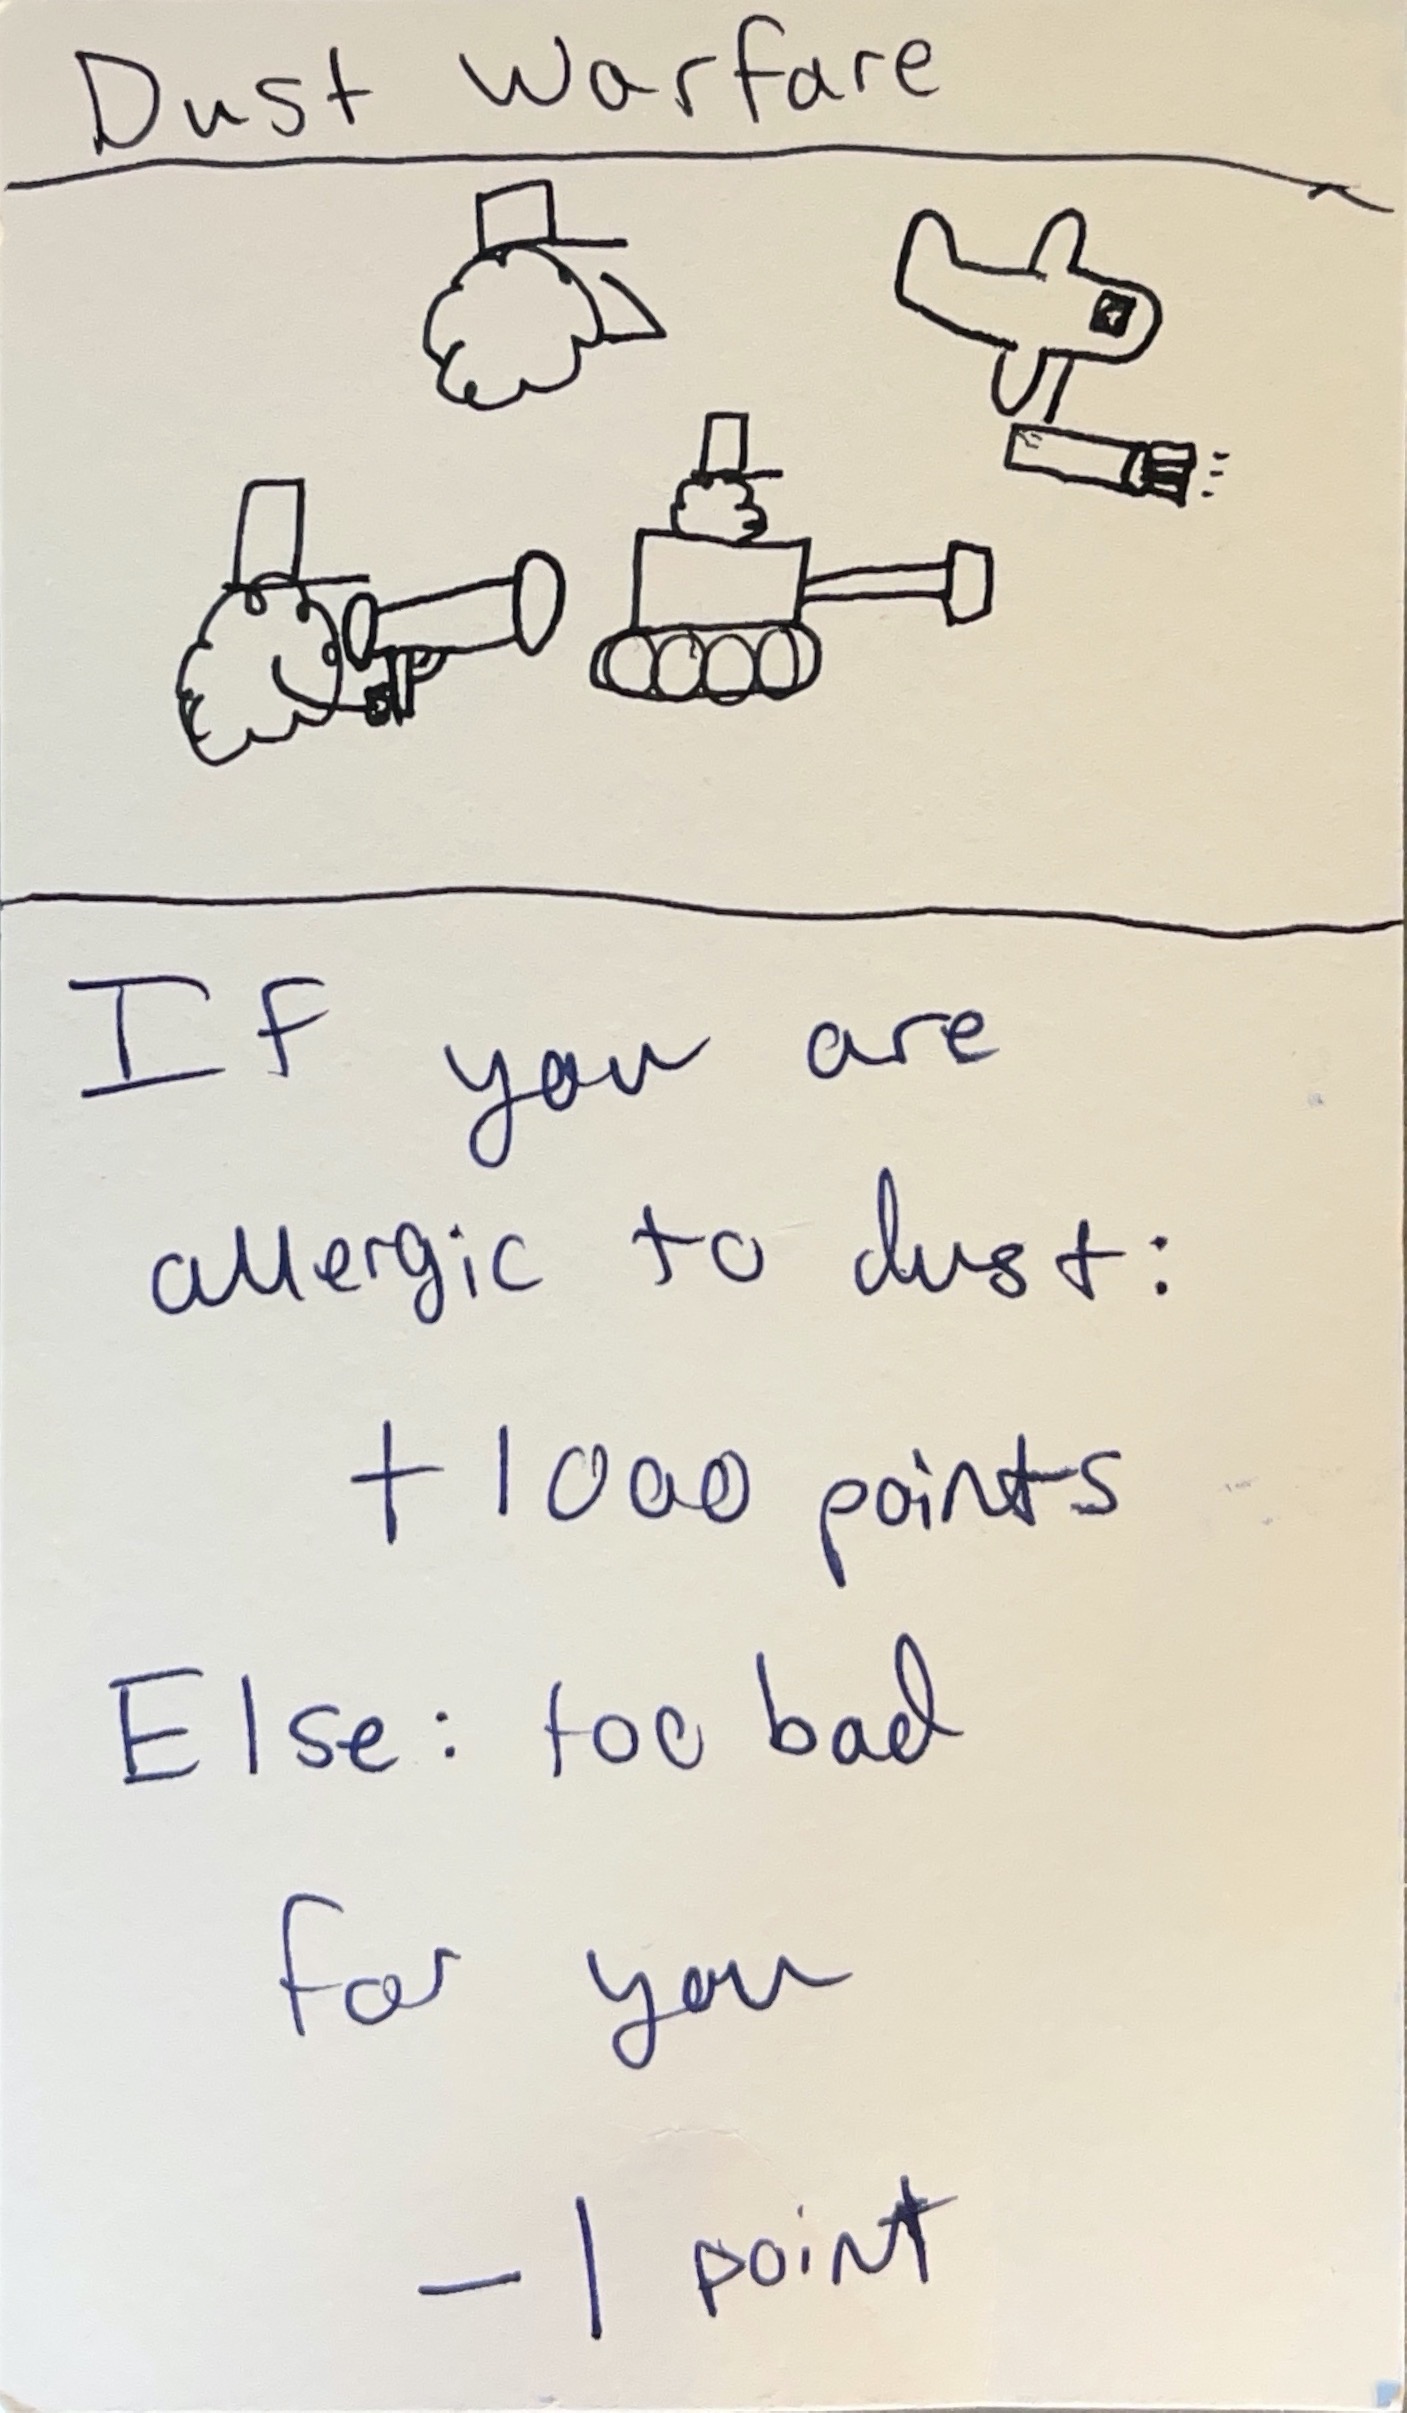 Dust Warfare
If you are
allergic to dust:
+1000 points
Else: too bad
for you
-1 point